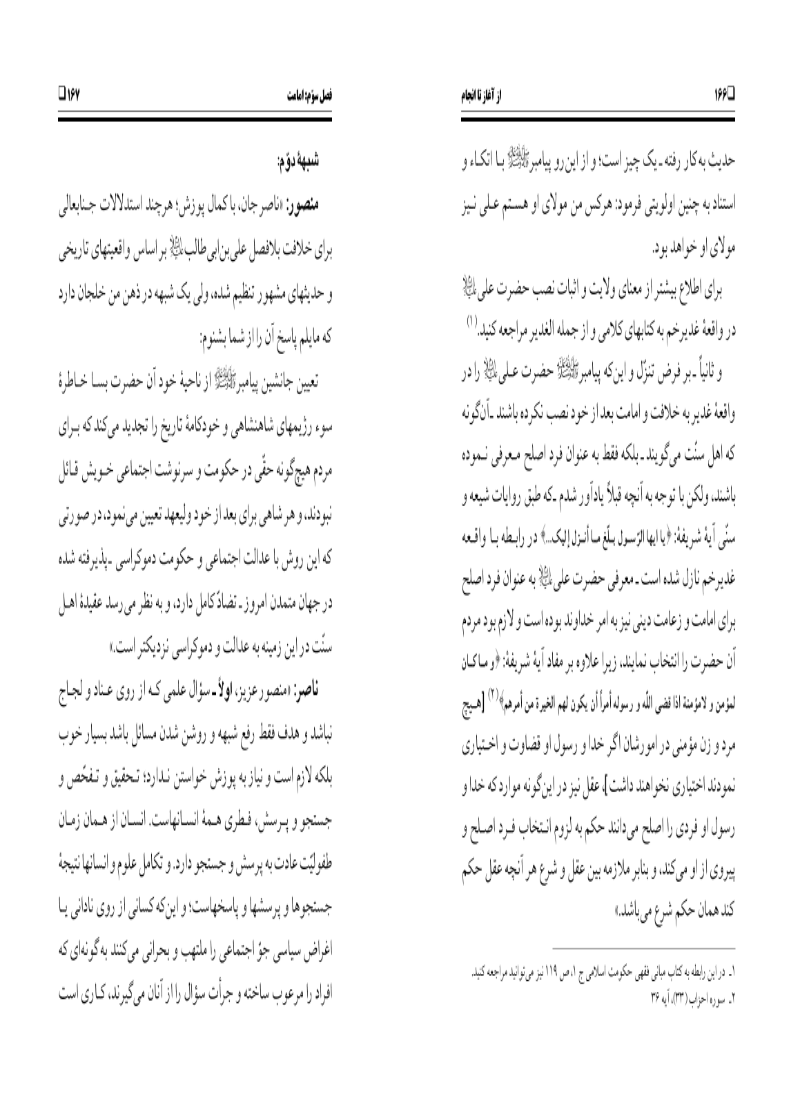 ❏۱۶۶ از آغاز تا انجام
حدیث به‌کار رفته ـ یک چیز است؛ و از این‌رو پیامبرﷺ با اتکاء و
استناد به چنین اولویتی فرمود: هرکس من مولای او هستم علی نیز
مولای او خواهد بود.
برای اطلاع بیشتر از معنای ولایت و اثبات نصب حضرت علی
در واقعهٔ غدیرخم به کتابهای کلامی و از جمله الغدیر مراجعه کنید.(۱)
و ثانیاً ـ بر فرض تنزّل و این‌که پیامبرﷺ حضرت علی را در
واقعهٔ غدیر به خلافت و امامت بعد از خود نصب نکرده باشند ـ آن‌گونه
که اهل سنّت می‌گویند ـ بلکه فقط به عنوان فرد اصلح معرفی نموده
باشند، ولکن با توجه به آنچه قبلاً یادآور شدم ـ که طبق روایات شیعه و
سنّی آیهٔ شریفهٔ: ﴿یا ایها الرّسول بلّغ ما أنزل إلیک...﴾ در رابطه با واقعه
غدیرخم نازل شده است ـ معرفی حضرت علی به عنوان فرد اصلح
برای امامت و زعامت دینی نیز به امر خداوند بوده است و لازم بود مردم
آن حضرت را انتخاب نمایند، زیرا علاوه بر مفاد آیهٔ شریفهٔ: ﴿و ماکان
لمؤمن و لامؤمنة اذا قضی اللّه و رسوله أمراً أن یکون لهم الخیرة من أمرهم﴾(۲) [هیچ
مرد و زن مؤمنی در امورشان اگر خدا و رسول او قضاوت و اختیاری
نمودند اختیاری نخواهند داشت]، عقل نیز در این‌گونه موارد که خدا و
رسول او فردی را اصلح می‌دانند حکم به لزوم انتخاب فرد اصلح و
پیروی از او می‌کند، و بنابر ملازمه بین عقل و شرع هر آنچه عقل حکم
کند همان حکم شرع می‌باشد.»
۱ـ در این رابطه به کتاب مبانی فقهی حکومت اسلامی ج ۱، ص ۱۱۹ نیز می‌توانید مراجعه کنید.
۲ـ سوره احزاب (۳۳)، آیه ۳۶
فصل سوّم: امامت ۱۶۷❏
شبههٔ دوّم:
منصور: «ناصر جان، با کمال پوزش؛ هرچند استدلالات جنابعالی
برای خلافت بلافصل علی‌بن‌ابی‌طالب بر اساس واقعیتهای تاریخی
و حدیثهای مشهور تنظیم شده، ولی یک شبهه در ذهن من خلجان دارد
که مایلم پاسخ آن را از شما بشنوم:
تعیین جانشین پیامبرﷺ از ناحیهٔ خود آن حضرت بسا خاطرهٔ
سوء رژیمهای شاهنشاهی و خودکامهٔ تاریخ را تجدید می‌کند که برای
مردم هیچ‌گونه حقّی در حکومت و سرنوشت اجتماعی خویش قائل
نبودند، و هر شاهی برای بعد از خود ولیعهد تعیین می‌نمود، در صورتی
که این روش با عدالت اجتماعی و حکومت دموکراسی ـ پذیرفته شده
در جهان متمدن امروز ـ تضادّ کامل دارد، و به نظر می‌رسد عقیدهٔ اهل
سنّت در این زمینه به عدالت و دموکراسی نزدیکتر است.»
ناصر: «منصور عزیز، اولاً ـ سؤال علمی که از روی عناد و لجاج
نباشد و هدف فقط رفع شبهه و روشن شدن مسائل باشد بسیار خوب
بلکه لازم است و نیاز به پوزش خواستن ندارد؛ تحقیق و تفحّص و
جستجو و پرسش، فطری همهٔ انسانهاست. انسان از همان زمان
طفولیّت عادت به پرسش و جستجو دارد. و تکامل علوم و انسانها نتیجهٔ
جستجوها و پرسشها و پاسخهاست؛ و این‌که کسانی از روی نادانی یا
اغراض سیاسی جوّ اجتماعی را ملتهب و بحرانی می‌کنند به گونه‌ای که
افراد را مرعوب ساخته و جرأت سؤال را از آنان می‌گیرند، کاری است